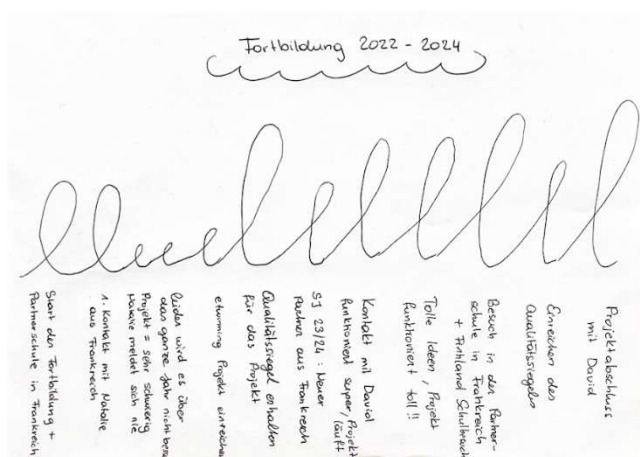 Fortbildung 2022 - 2024
Start der Fortbildung +
Partnerschule in Frankreich
1. Kontakt mit Natalie
aus Frankreich
Leider wird es über
das ganze Jahr nicht besser
Projekt = sehr schwierig
Natalie meldet sich nie
etwinning Projekt einreichen
Qualitätssiegel erhalten
für das Projekt
SJ 23/24 : Neuer
Partner aus Frankreich
Kontakt mit David
funktioniert super, Projekt
läuft
Tolle Ideen, Projekt
funktioniert toll!!
Besuch in der Partner-
schule in Frankreich
+ Finnland
Einreichen des
Qualitätssiegels
Projektabschluss
mit David